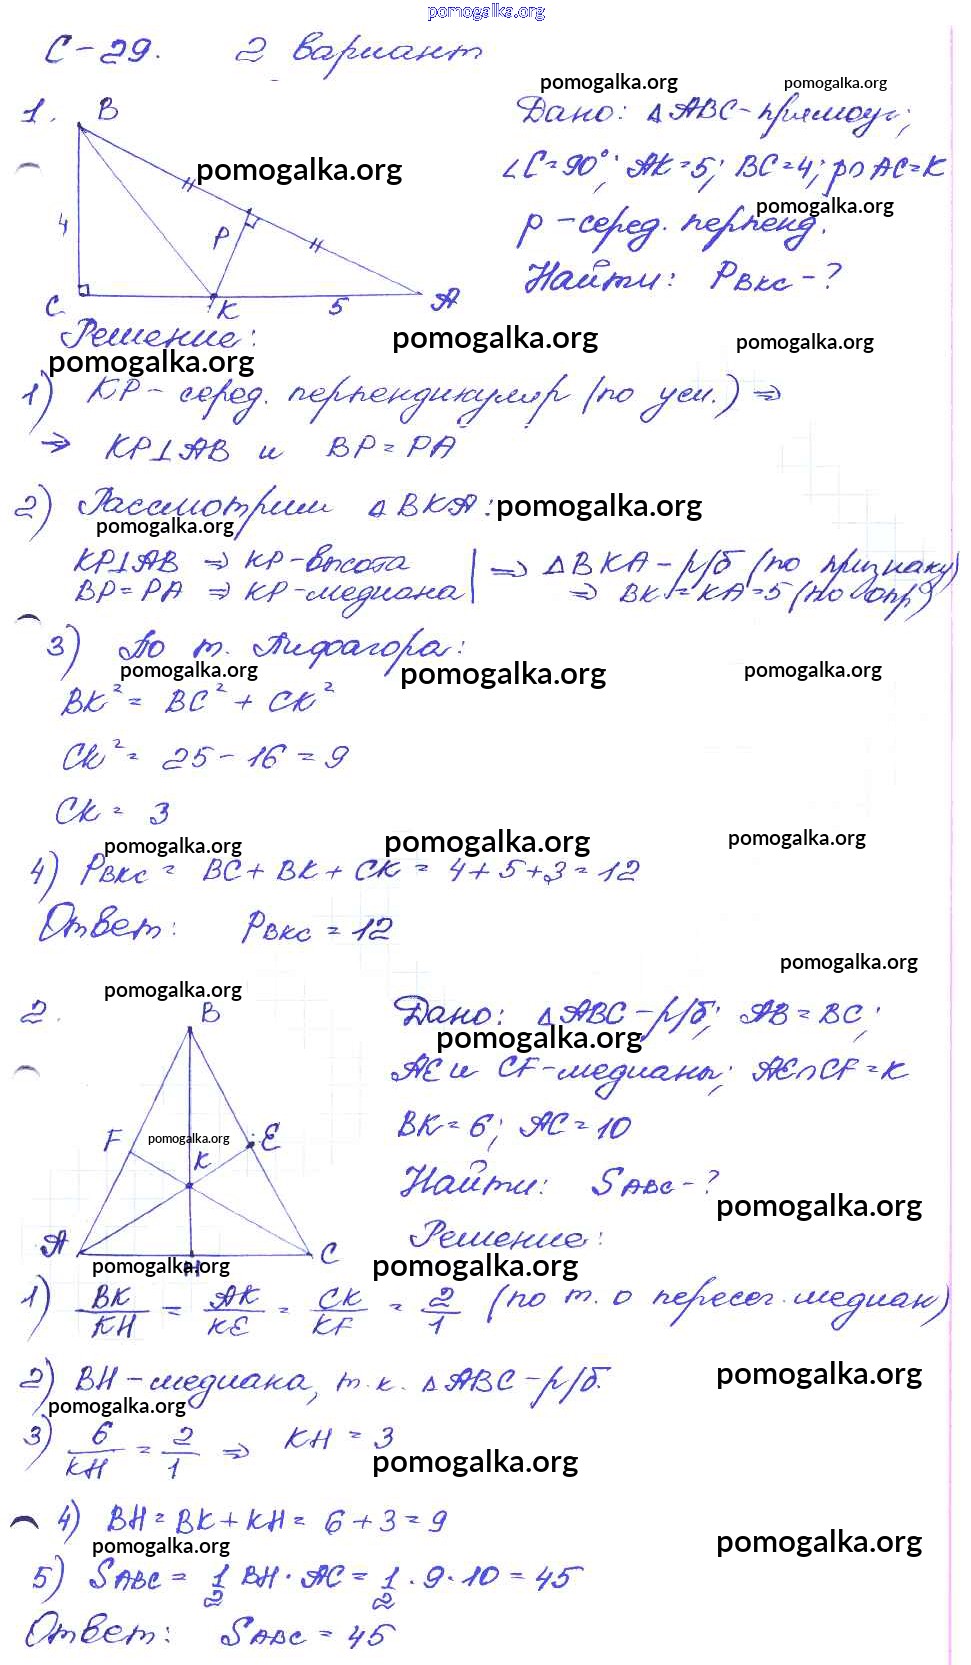 pomogalka.org
С-29. 2 вариант
pomogalka.org pomogalka.org
1. B Дано: △ABC-прямоуг;
pomogalka.org ∠C=90°; AK=5; BC=4; p∩AC=K
4 P p-серед. перпенд. pomogalka.org
C K 5 A Найти: P_BKC-?
Решение: pomogalka.org pomogalka.org
pomogalka.org
1) KP- серед. перпендикуляр (по усл.) ⇒
⇒ KP⊥AB и BP=PA
2) Рассмотрим △BKA: pomogalka.org
pomogalka.org
KP⊥AB ⇒ KP-высота | ⇒ △BKA-р/б (по признаку)
BP=PA ⇒ KP-медиана | ⇒ BK=KA=5 (по опр)
3) По т. Пифагора:
pomogalka.org pomogalka.org pomogalka.org
BK² = BC² + CK²
CK² = 25 - 16 = 9
CK = 3
pomogalka.org pomogalka.org pomogalka.org
4) P_BKC = BC + BK + CK = 4+5+3=12
Ответ: P_BKC = 12
pomogalka.org
pomogalka.org
2. B Дано: △ABC-р/б; AB=BC;
pomogalka.org
AE и CF-медианы; AE∩CF=K
F pomogalka.org E BK=6; AC=10
K Найти: S_ABC-?
pomogalka.org
A H C Решение:
pomogalka.org pomogalka.org
1) BK/KH = AK/KE = CK/KF = 2/1 (по т. о пересеч. медиан)
2) BH-медиана, т.к. △ABC-р/б. pomogalka.org
pomogalka.org
3) 6/KH = 2/1 ⇒ KH = 3
pomogalka.org
4) BH = BK + KH = 6 + 3 = 9
pomogalka.org pomogalka.org
5) S_ABC = 1/2 BH · AC = 1/2 · 9 · 10 = 45
Ответ: S_ABC = 45